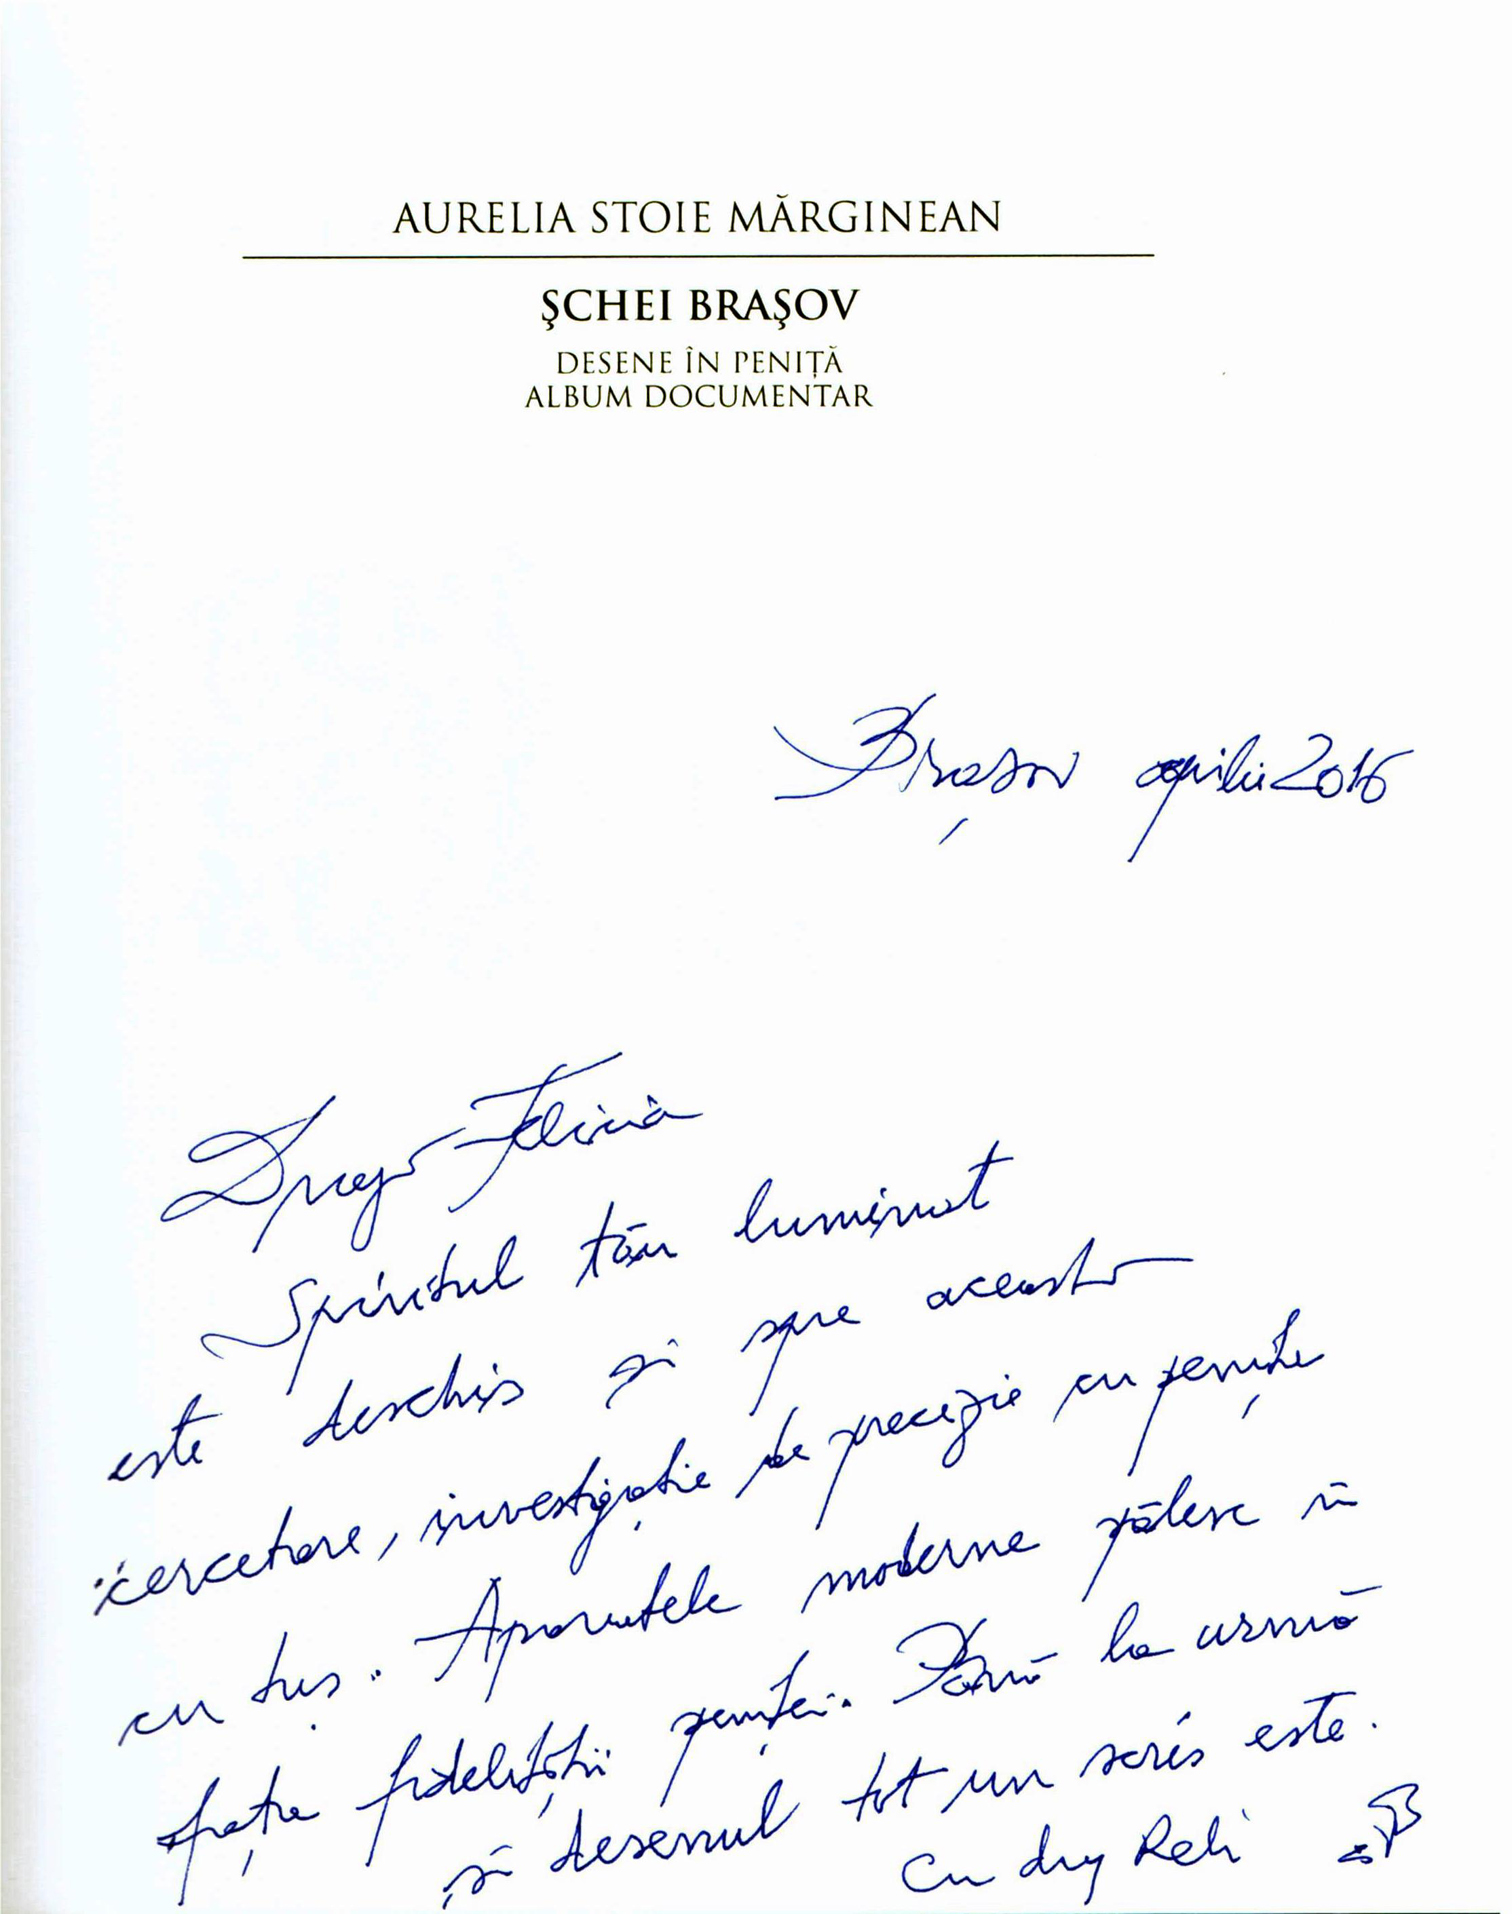 AURELIA STOIE MĂRGINEAN
ŞCHEI BRAŞOV
DESENE ÎN PENIȚĂ
ALBUM DOCUMENTAR
Brașov aprilie 2016
Dragă Felicia
Spiritul tău luminat
este deschis și spre această
cercetare, investigație de precizie cu penițe
cu tuș. Aparatele moderne pălesc în
fața fidelității peniței. Până la urmă
și desenul tot un scris este.
Cu drag Reli